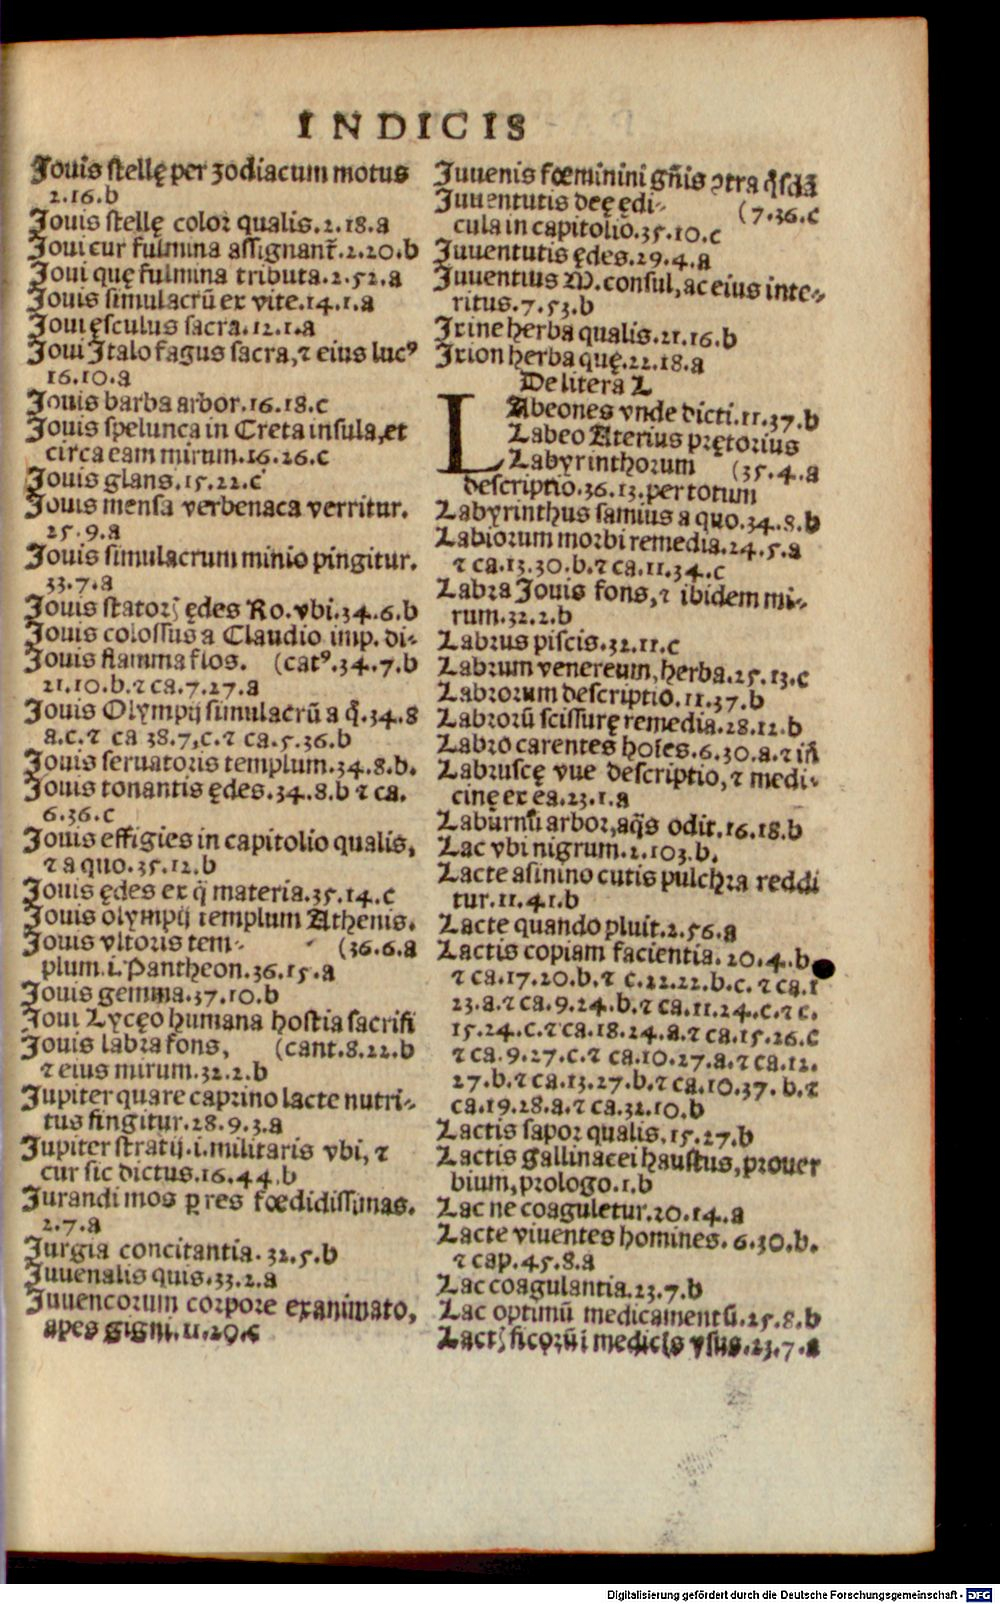 INDICIS
Jouis stellę per zodiacum motus
2.16.b
Jouis stellę color qualis.2.18.a
Joui cur fulmina assignant̃.2.20.b
Joui quę fulmina tributa.2.52.a
Jouis simulacrũ ex vite.14.1.a
Joui ęsculus sacra.12.1.a
Joui Italo fagus sacra,⁊ eius lucꝰ
16.10.a
Jouis barba arbor.16.18.c
Jouis spelunca in Creta insula,et
circa eam mirum.16.26.c
Jouis glans.15.22.c
Jouis mensa verbenaca verritur.
25.9.a
Jouis simulacrum minio pingitur.
33.7.a
Jouis statorꝭ ędes Ro.vbi.34.6.b
Jouis colossus a Claudio imp. di-
Jouis flamma flos. (catꝰ.34.7.b
21.10.b.⁊ ca.7.27.a
Jouis Olympij simulacrũ a q̃.34.8
a.c.⁊ ca 38.7,c.⁊ ca.5.36.b
Jouis seruatoris templum.34.8.b.
Jouis tonantis ędes.34.8.b ⁊ ca.
6.36.c
Jouis effigies in capitolio qualis,
⁊ a quo.35.12.b
Jouis ędes ex q̃ materia.35.14.c
Jouis olympij templum Athenis.
Jouis vltoris tem- (36.6.a
plum.i.Pantheon.36.15.a
Jouis gemma.37.10.b
Joui Lycęo humana hostia sacrifi
Jouis labra fons, (cant.8.22.b
⁊ eius mirum.32.2.b
Jupiter quare caprino lacte nutri-
tus fingitur.28.9.3.a
Jupiter stratij.i.militaris vbi,⁊
cur sic dictus.16.44.b
Jurandi mos ꝑ res fœdidissimas.
2.7.a
Jurgia concitantia.32.5.b
Juuenalis quis.33.2.a
Juuencorum corpore exanimato,
apes gigni.11.20.c
Juuenis fœminini gñis ꝯtra q̃sdã
Juuentutis deę ędi- (7.36.c
cula in capitolio.35.10.c
Juuentutis ędes.29.4.a
Juuentius M.consul,ac eius inte-
ritus.7.53.b
Ixine herba qualis.21.16.b
Ixion herba quę.22.18.a
De litera L
LAbeones vnde dicti.11.37.b
Labeo Aterius prętorius
Labyrinthorum (35.4.a
descriptio.36.13.per totum
Labyrinthus samius a quo.34.8.b
Labiorum morbi remedia.24.5.a
⁊ ca.13.30.b.⁊ ca.11.34.c
Labra Jouis fons,⁊ ibidem mi-
rum.32.2.b
Labrus piscis.32.11.c
Labrum venereum,herba.25.13.c
Labrorum descriptio.11.37.b
Labrorũ scissurę remedia.28.12.b
Labro carentes hoĩes.6.30.a.⁊ iñ
Labruscę vue descriptio,⁊ medi-
cinę ex ea.23.1.a
Laburnũ arbor,aq̃s odit.16.18.b
Lac vbi nigrum.2.103.b.
Lacte asinino cutis pulchra reddi
tur.11.41.b
Lacte quando pluit.2.56.a
Lactis copiam facientia.20.4.b
⁊ ca.17.20.b.⁊ c.22.22.b.c.⁊ ca.1
23.a.⁊ ca.9.24.b.⁊ ca.11.24.c.⁊ c.
15.24.c.⁊ ca.18.24.a.⁊ ca.15.26.c
⁊ ca.9.27.c.⁊ ca.10.27.a.⁊ ca.12.
27.b.⁊ ca.13.27.b.⁊ ca.10.37.b.⁊
ca.19.28.a.⁊ ca.32.10.b
Lactis sapor qualis.15.27.b
Lactis gallinacei haustus,prouer
bium,prologo.1.b
Lac ne coaguletur.20.14.a
Lacte viuentes homines.6.30.b.
⁊ cap.45.8.a
Lac coagulantia.23.7.b
Lac optimũ medicamentũ.25.8.b
Lactꝭ ficorũ ĩ medicĩs vsus.23.7.a
Digitalisierung gefördert durch die Deutsche Forschungsgemeinschaft - DFG